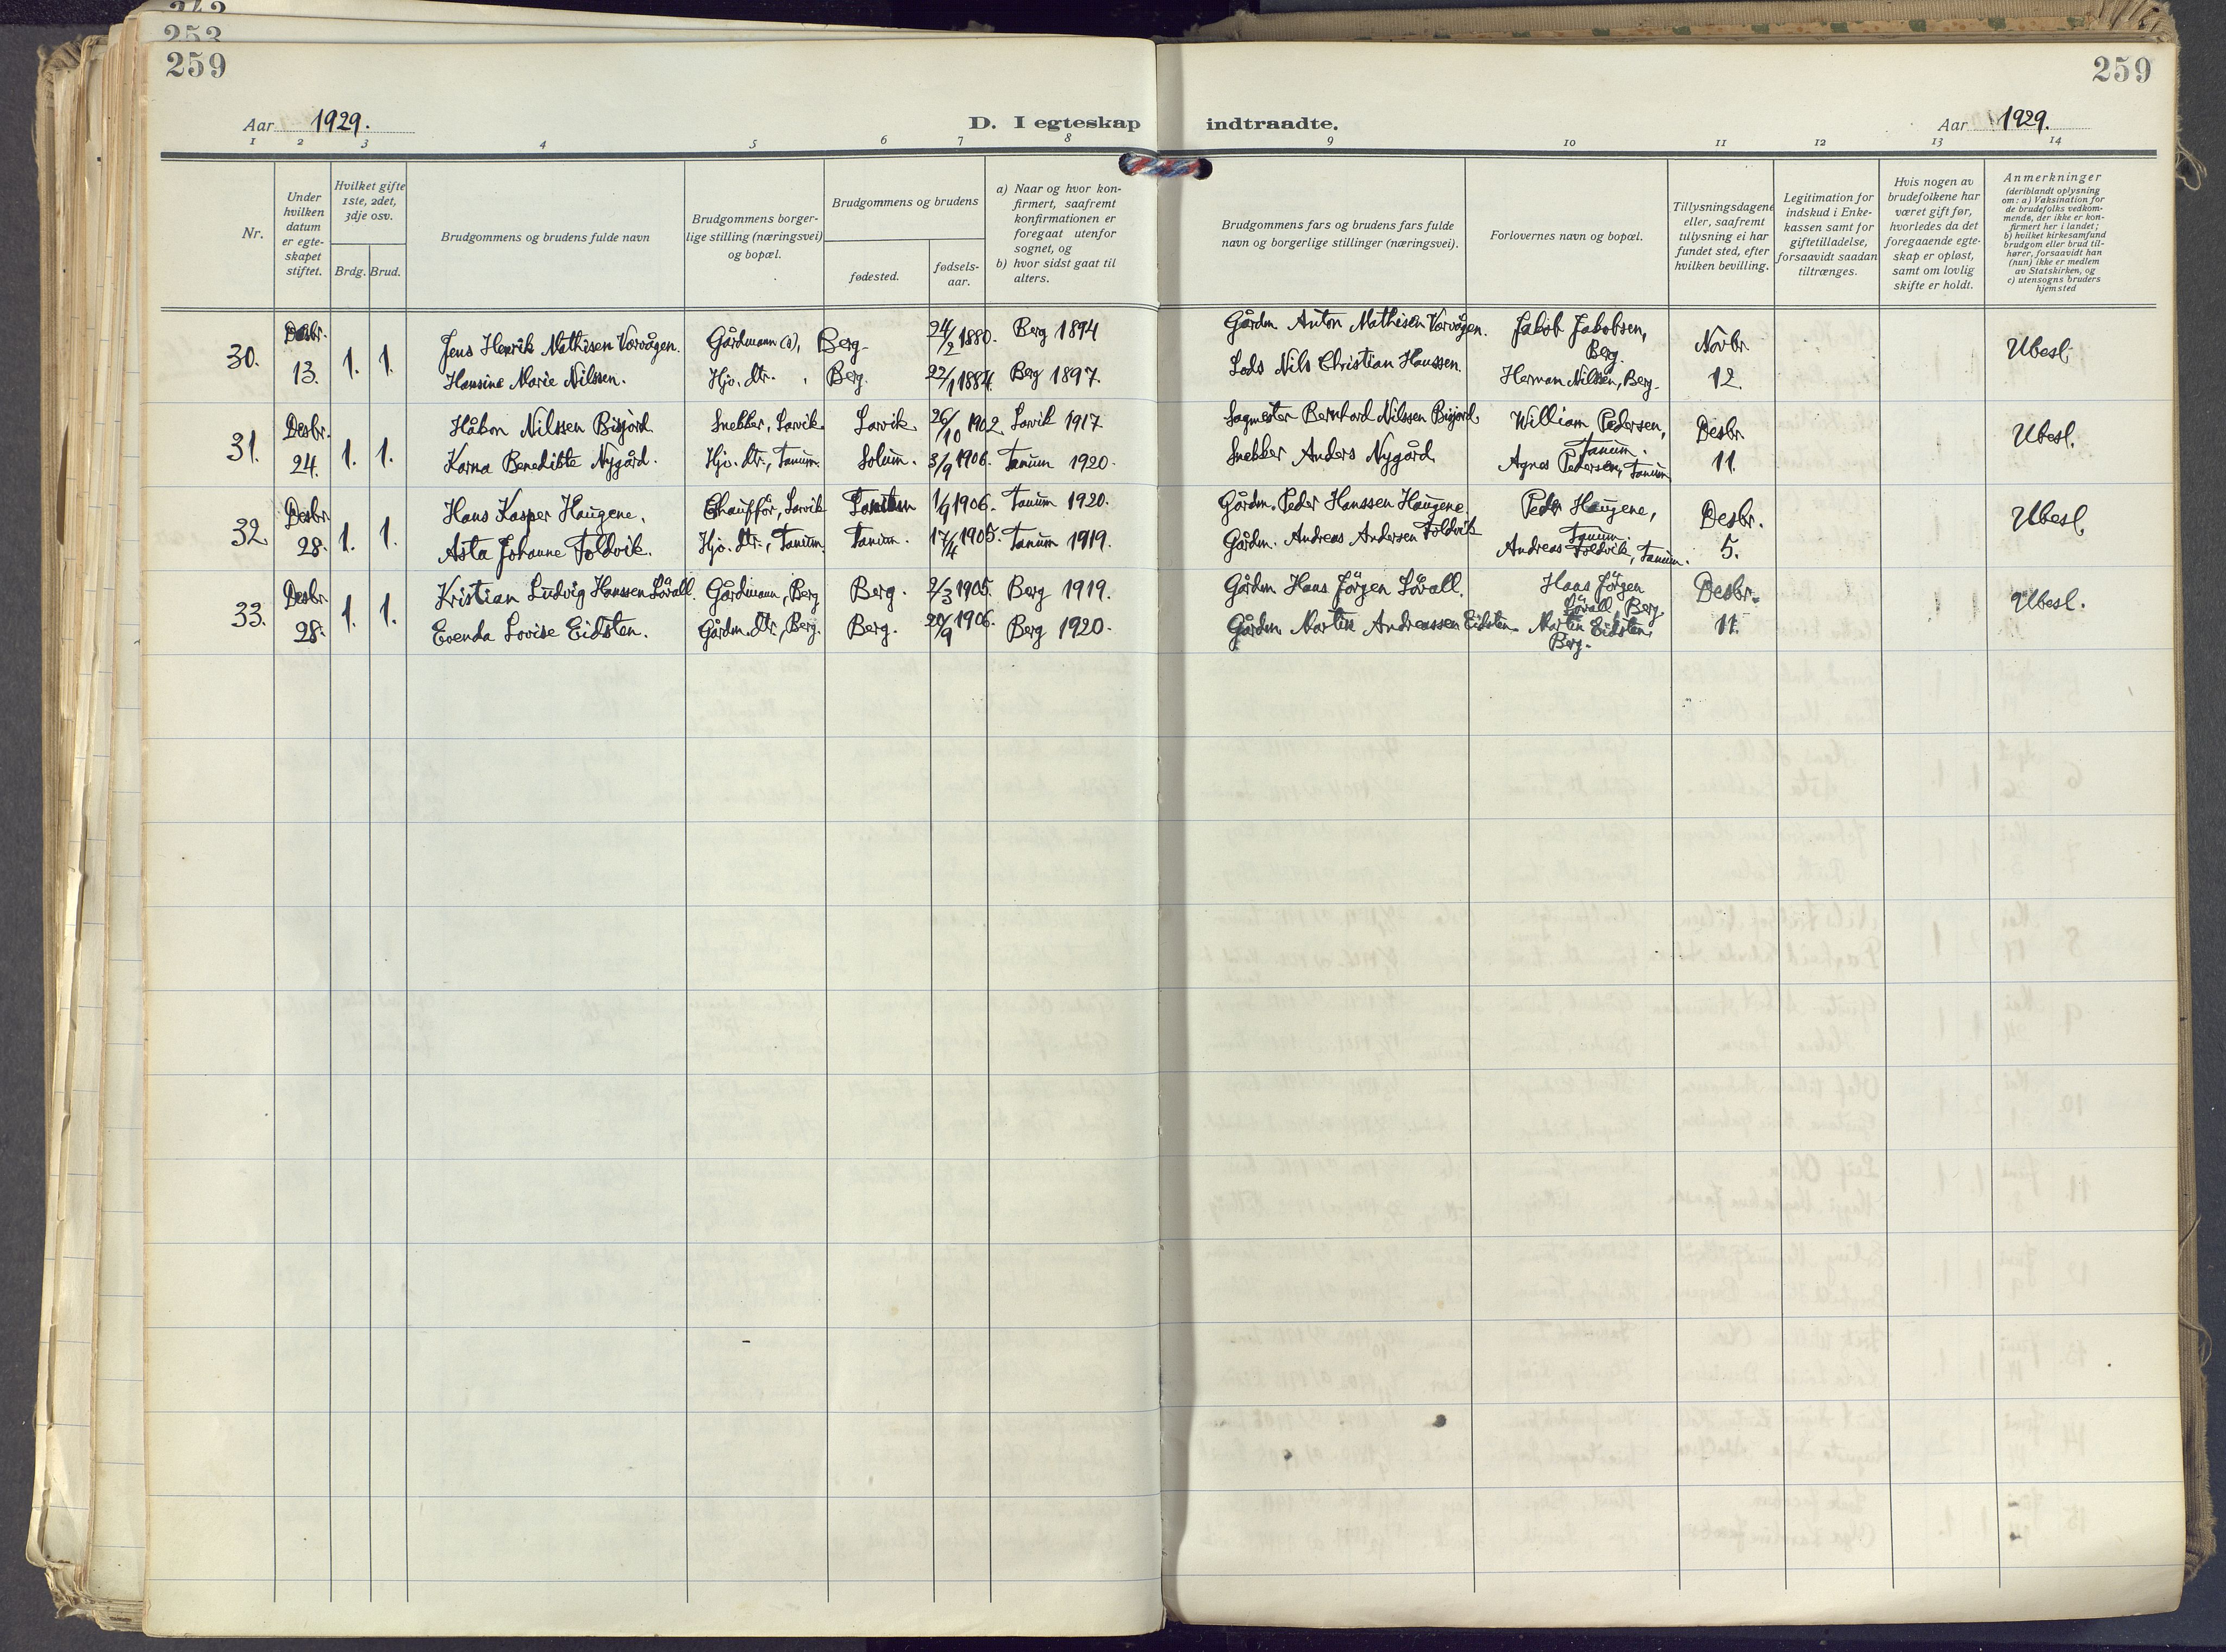 243
253
259
259
Aar 1929.
D. I egteskap indtraadte.
Aar 1929.
1 2 3 4 5 6 7 8 9 10 11 12 13 14
Nr.
Under hvilken datum er egte-skapet stiftet.
Hvilket gifte 1ste, 2det, 3dje osv.
Brdg. Brud.
Brudgommens og brudens fulde navn
Brudgommens borger-
lige stilling (næringsvei)
og bopæl.
Brudgommens og brudens
fødested.
fødsels-
aar.
a) Naar og hvor kon-
firmert, saafremt
konfirmationen er
foregaat utenfor
sognet, og
b) hvor sidst gaat til
alters.
Brudgommens fars og brudens fars fulde
navn og borgerlige stillinger (næringsvei).
Forlovernes navn og bopæl.
Tillysningsdagene
eller, saafremt
tillysning ei har
fundet sted, efter
hvilken bevilling.
Legitimation for
indskud i Enke-
kassen samt for
giftetilladelse,
forsaavidt saadan
tiltrænges.
Hvis nogen av
brudefolkene har
været gift før,
hvorledes da det
foregaaende egte-
skap er opløst,
samt om lovlig
skifte er holdt.
Anmerkninger
(deriblandt oplysning
om: a) Vaksination for
de brudefolks vedkom-
mende, der ikke er kon-
firmert her i landet;
b) hvilket kirkesamfund
brudgom eller brud til-
hører, forsaavidt han
(hun) ikke er medlem
av Statskirken, og
c) utensogns bruders
hjemsted
30. Desbr. 13. 1. 1.
Jens Henrik Mathisen Vorvågen. Gårdmann (s), Berg. 24/2 1880. Berg 1894 Gårdm. Anton Mathisen Vorvågen. Jakob Jakobsen, Berg. Novbr. Ubesl.
Hansine Marie Nilssen. Hjv. dtr., Berg. 22/1 1884. Berg 1897. Lods Nils Christian Hanssen. Herman Nilssen, Berg. 12.
31. Desbr. 24. 1. 1.
Håkon Nilssen Bisjord. Snekker, Larvik. Larvik. 26/10 1902. Larvik 1917 Sagmester Bernhard Nilssen Bisjord. William Pedersen, Tanum. Desbr. Ubesl.
Karna Benedikte Nygård. Hjv. dtr., Tanum. Solum. 3/9 1906. Tanum 1920. Snekker Anders Nygård. Agnes Pedersen, Tanum. 11.
32. Desbr. 28. 1. 1.
Hans Kasper Haugene. Chauffør, Larvik Tanum 1/9 1906. Tanum 1920. Gårdm. Peder Hanssen Haugene. Peder Haugene, Tanum. Desbr. Ubesl.
Asta Johanne Foldvik. Hjv. dtr., Tanum. Tanum. 17/4 1905. Tanum 1919. Gårdm. Andreas Andersen Foldvik Andreas Foldvik, Tanum. 5.
33. Desbr. 28. 1. 1.
Kristian Ludvig Hanssen Løvall. Gårdmann, Berg Berg. 2/3 1905. Berg 1919. Gårdm. Hans Jörgen Lövall. Hans Jörgen Lövall, Berg. Desbr. Ubesl.
Evenda Lovise Eidsten. Gårdm. dtr., Berg. Berg. 20/9 1906. Berg 1920. Gårdm. Martin Andreassen Eidsten. Martin Eidsten, Berg. 11.